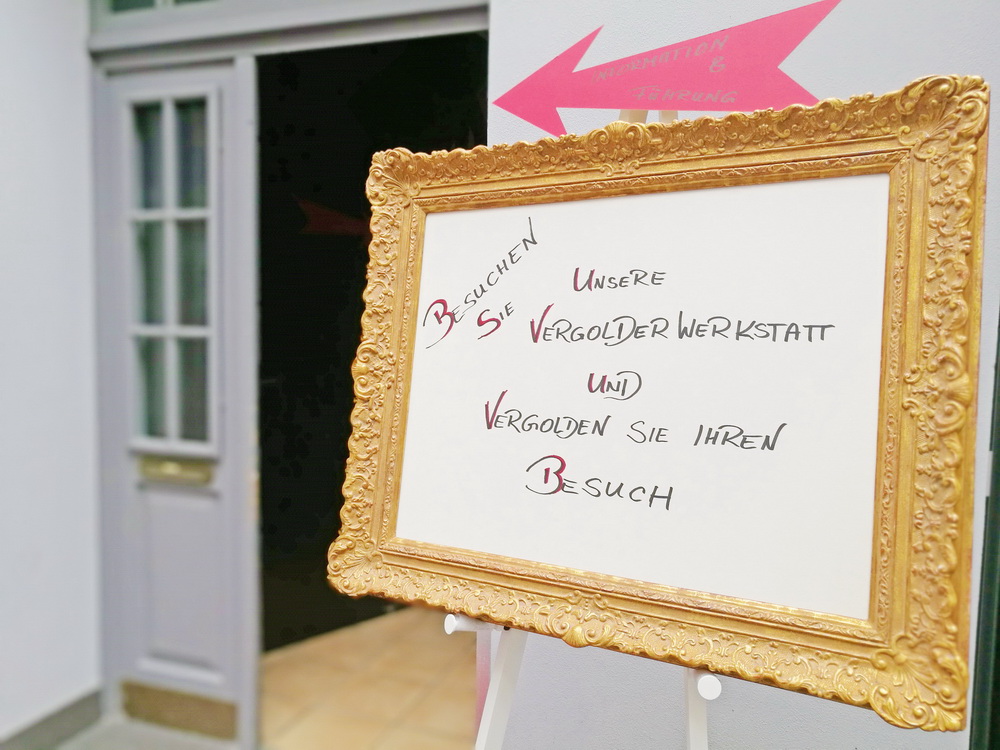 INFORMATION
&
FÜHRUNG
BESUCHEN
SIE
UNSERE
VERGOLDERWERKSTATT
UND
VERGOLDEN SIE IHREN
BESUCH